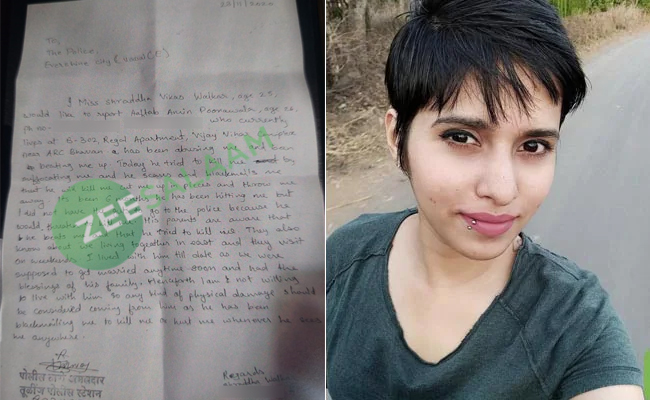 To,
The Police,
I Miss Shraddha Vikas Walkar, age 25,
would like to report Aaftab Amin Poonawala, age 26,
ph no - who currently
lives at B-302, Regal Apartment, Vijay Vihar
near ARC Bhavan & has been abusing me &
beating me up. Today he tried to kill me by
suffocating me and he scares and blackmails me
that he will kill me, cut me up in pieces and throw me
away. It's been 6 he has been hitting me. But
I did not have to go to the police because he
would His parents are aware that
he beats me and that he tried to kill me. They also
know about us living together in east and they visit
on weekends. I lived with him till date as we were
supposed to get married anytime soon and had the
blessings of his family. Henceforth I am not willing
to live with him so any kind of physical damage should
be considered coming from him as he has been
blackmailing me to kill me or hurt me whenever he sees
me anywhere.
Regards
Shraddha Walkar
पोलीस ठाणे अंमलदार
तुळींज पोलीस स्टेशन
ZEE SALAAM